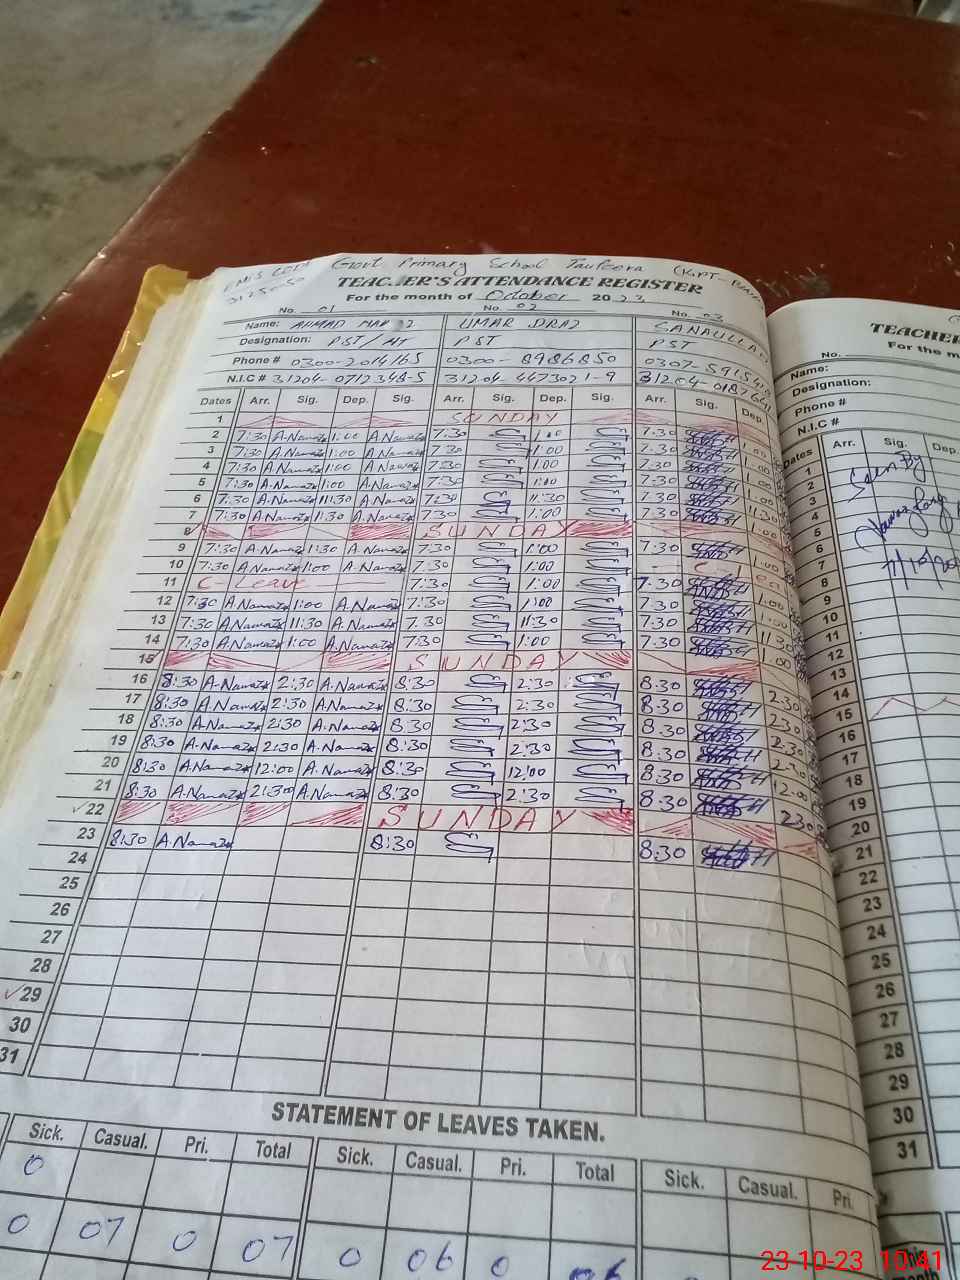 Govt Primary School
TEACHER'S ATTENDANCE REGISTER
For the month of October 2023
No. 01 No. 02 No. 03
Name: AHMAD UMAR DRAZ SANAULLAH
Designation: PST/HT PST PST
Phone # 0300-2014165 0300-8986850 0307-
N.I.C # 31204-0712348-5 31204-4473021-9 31204-
Dates Arr. Sig. Dep. Sig. Arr. Sig. Dep. Sig. Arr. Sig. Dep.
1 SUNDAY
2 7:30 A.Nawaz 1:00 A.Nawaz 7:30 1:00 7:30 1:00
3 7:30 A.Nawaz 1:00 A.Nawaz 7:30 1:00 7:30 1:00
4 7:30 A.Nawaz 1:00 A.Nawaz 7:30 1:00 7:30 1:00
5 7:30 A.Nawaz 1:00 A.Nawaz 7:30 1:00 7:30 1:00
6 7:30 A.Nawaz 11:30 A.Nawaz 7:30 11:30 7:30 11:30
7 7:30 A.Nawaz 1:30 A.Nawaz 7:30 1:00 7:30 1:00
8 SUNDAY
9 7:30 A.Nawaz 1:30 A.Nawaz 7:30 1:00 7:30 1:00
10 7:30 A.Nawaz 1:00 A.Nawaz 7:30 1:00
11 C-Leave 7:30 1:00 7:30 1:00
12 7:30 A.Nawaz 1:00 A.Nawaz 7:30 1:00 7:30 1:00
13 7:30 A.Nawaz 11:30 A.Nawaz 7:30 11:30 7:30 11:30
14 7:30 A.Nawaz 1:00 A.Nawaz 7:30 1:00 7:30 1:00
15 SUNDAY
16 8:30 A.Nawaz 2:30 A.Nawaz 8:30 2:30 8:30 2:30
17 8:30 A.Nawaz 2:30 A.Nawaz 8:30 2:30 8:30 2:30
18 8:30 A.Nawaz 2:30 A.Nawaz 8:30 2:30 8:30 2:30
19 8:30 A.Nawaz 2:30 A.Nawaz 8:30 2:30 8:30 2:30
20 8:30 A.Nawaz 12:00 A.Nawaz 8:30 12:00 8:30 12:00
21 8:30 A.Nawaz 2:30 A.Nawaz 8:30 2:30 8:30 2:30
22 SUNDAY
23 8:30 A.Nawaz 8:30 8:30
24
25
26
27
28
29
30
31
STATEMENT OF LEAVES TAKEN.
Sick. Casual. Pri. Total Sick. Casual. Pri. Total Sick. Casual. Pri.
0
0 07 0 07 0 06 0 06
TEACHER
For the m
No.
Name:
Designation:
Phone #
N.I.C #
Dates Arr. Sig. Dep.
1
2 Seen By
3
4
5
6
7
8
9
10
11
12
13
14
15
16
17
18
19
20
21
22
23
24
25
26
27
28
29
30
31
23-10-23 10:41